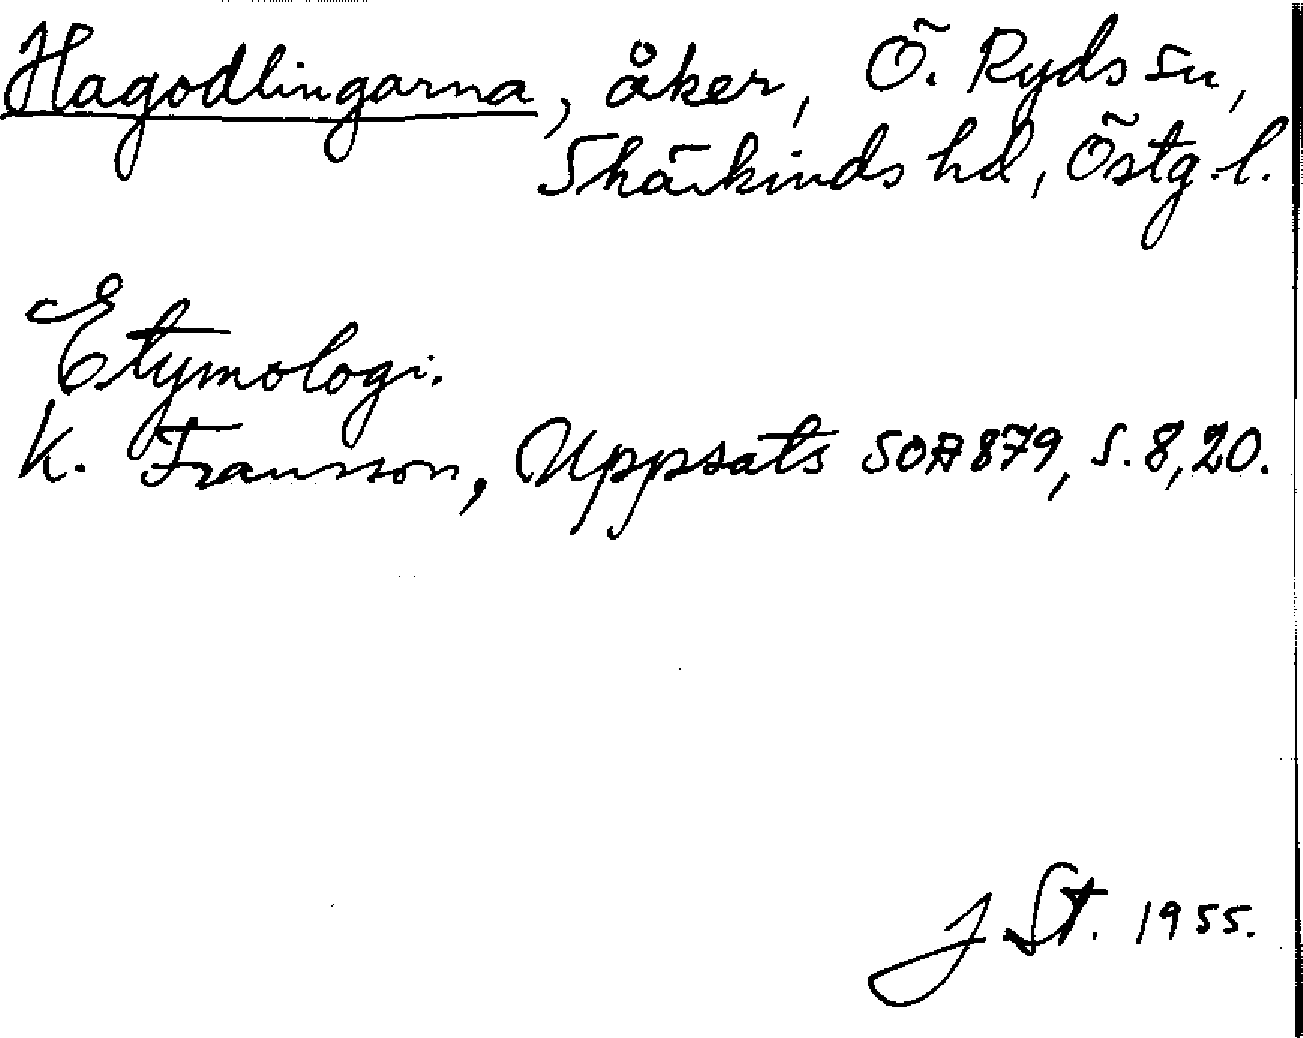 Hagodlingarna, åker, Ö. Ryds sn,
Skärkinds hd, Östg. l.
Etymologi.
K. Fransson, Uppsats SOA 879, s. 8, 20.
J St. 1955.